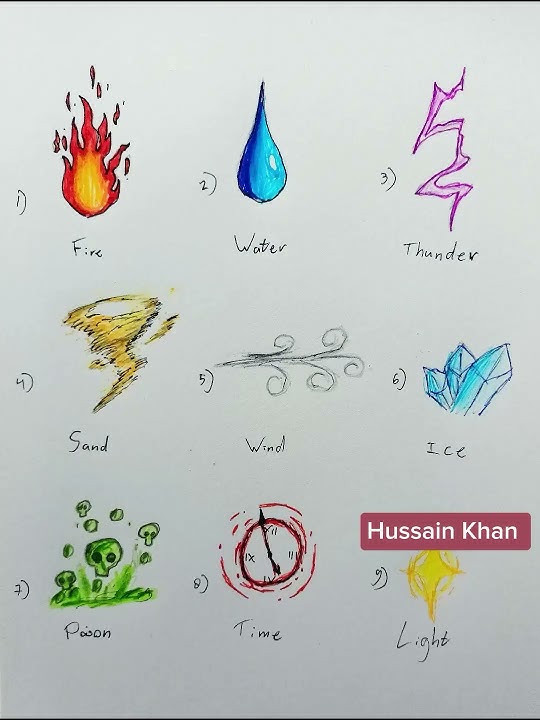 1)
Fire
2)
Water
3)
Thunder
4)
Sand
5)
Wind
6)
Ice
7)
Poison
8)
XII
IX
III
VI
Time
Hussain Khan
9)
Light